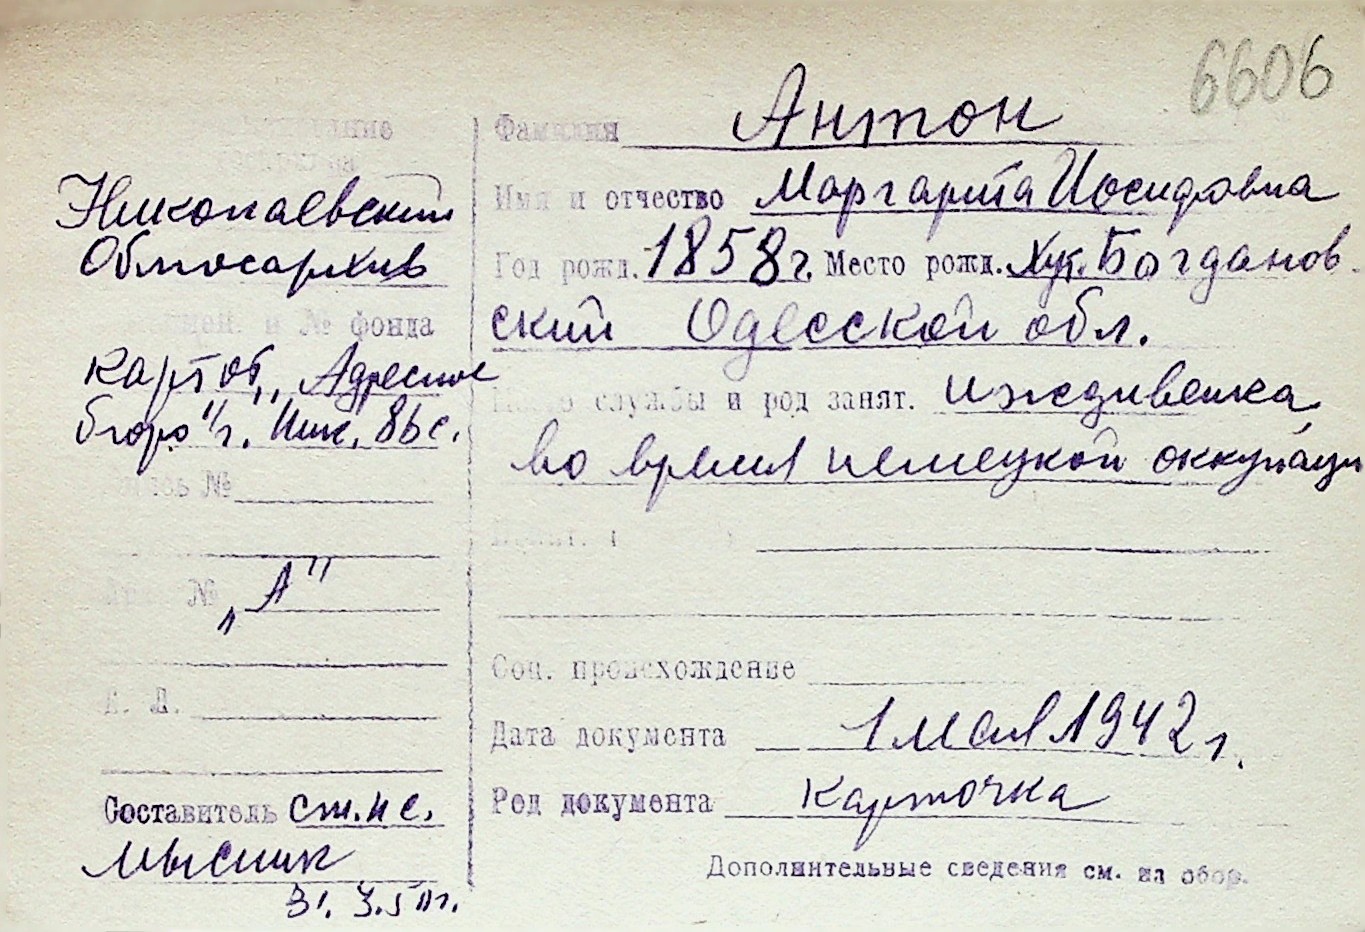 6606
Николаевский
Облгосархив
и № фонда
картот. „Адресное
бюро" г. Ник. 8bс.
№
№ „А"
Л. Д.
Составитель ст. н с.
Мысник
31. 3. 50 г.
Фамилия Антон
Имя и отчество Маргарита Иосифовна
Год рожд. 1858 г. Место рожд. Хут. Богданов-
ский Одесской обл.
службы и род занят. иждивенка
во время немецкой оккупаци
Соц. происхождение
Дата документа 1 мая 1942 г.
Род документа Карточка
Дополнительные сведения см. на обор.